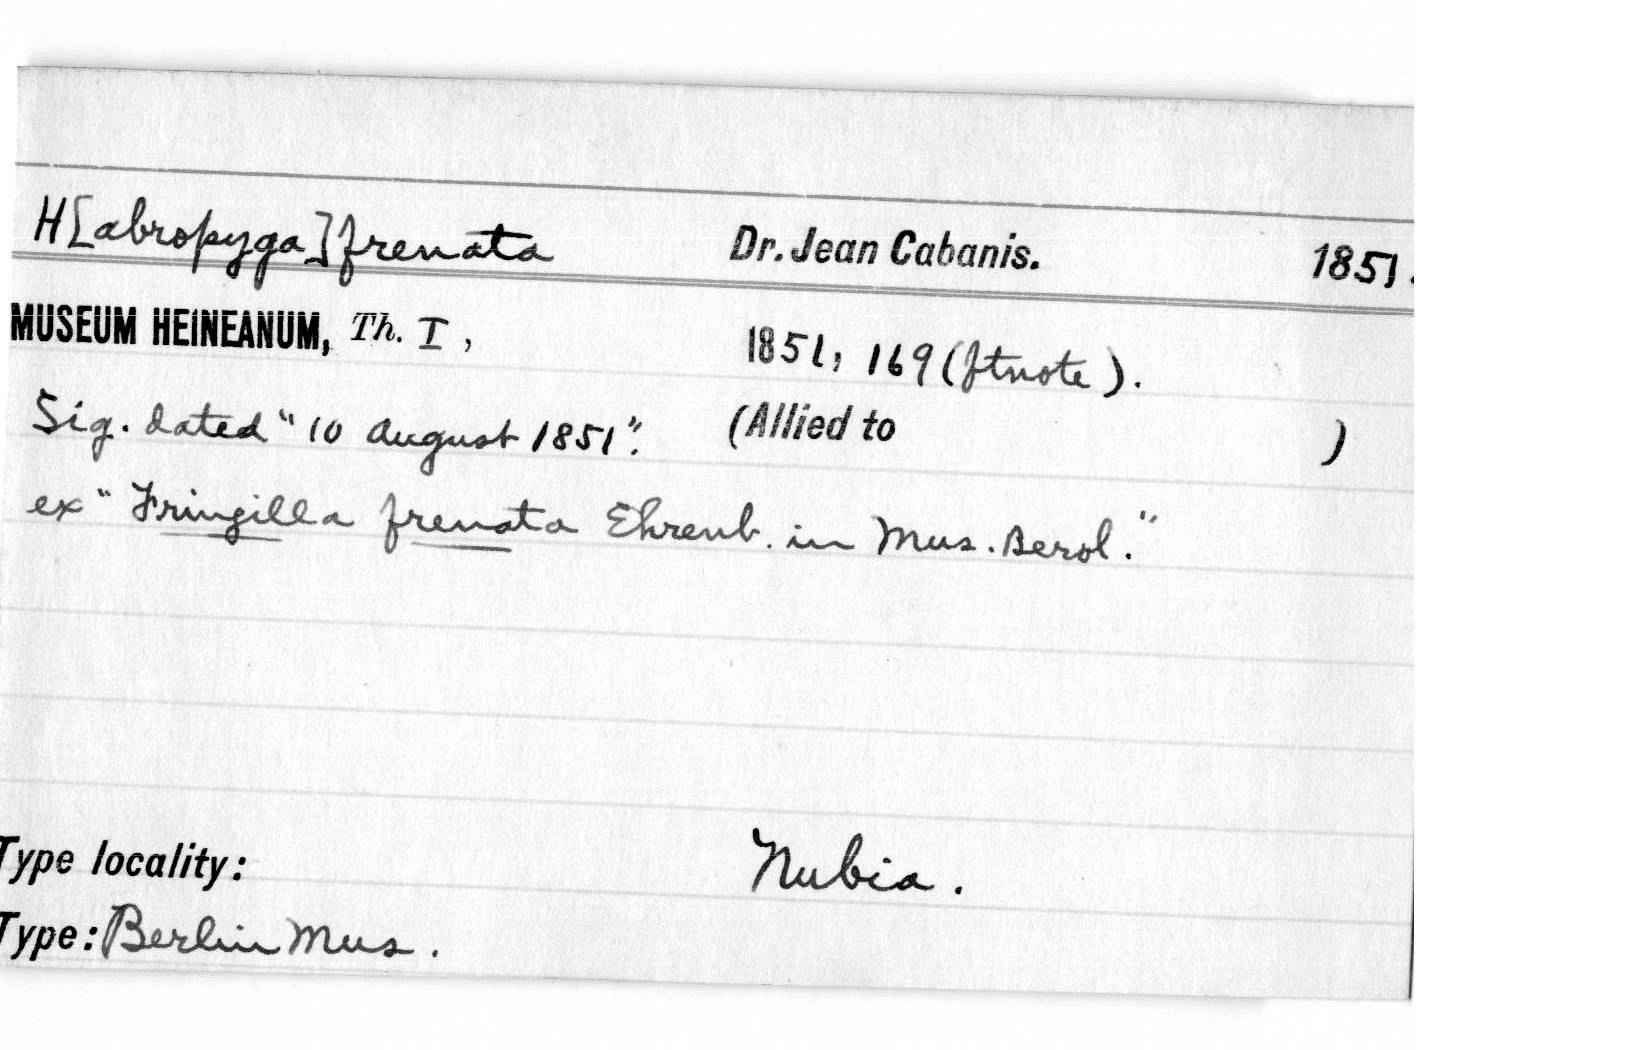 H[abropyga] frenata Dr. Jean Cabanis. 1851.
MUSEUM HEINEANUM, Th. I, 1851, 169 (ftnote).
Sig. dated "10 August 1851". (Allied to )
ex "Fringilla frenata Ehrenb. in Mus. Berol."
Type locality: Nubia.
Type: Berlin Mus.